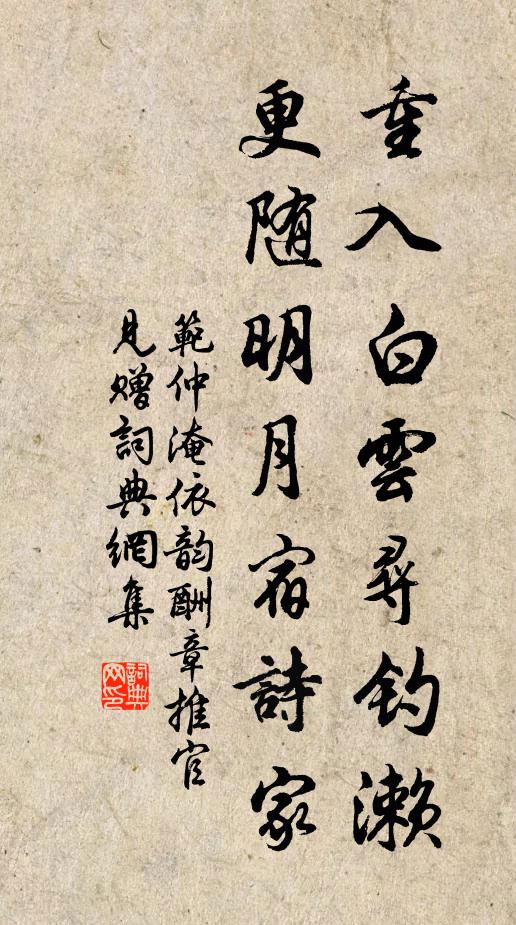 重入白雲尋釣瀨
更随明月宿詩家
範仲淹依韵酬章推官
見贈詞典網集
詞典
网印